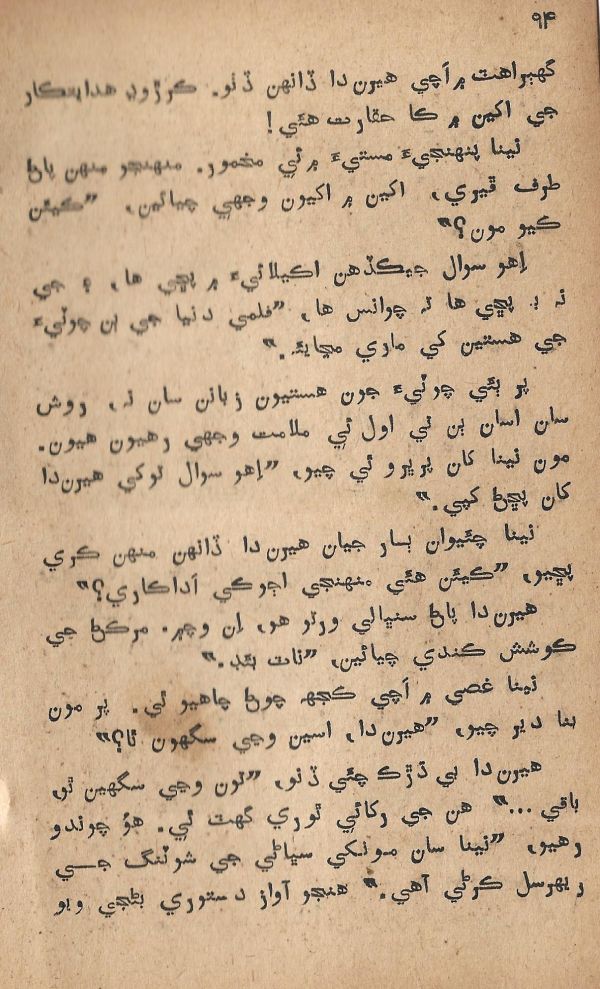 ۹۴
گهٻراهٽ ۾ اَچي هيرن دا ڏانهن ڏٺو. ڪرڙوڊ هدايتڪار
جي اکين ۾ ڪا حقارت هئي!
نينا پنهنجيءَ مستيءَ ۾ ئي مخمور. منهنجو منهن پاڻ
طرف ڦيري، اکين ۾ اکيون وجهي چيائين، ”ڪيئن
ڪيو مون؟“
اِهو سوال جيڪڏهن اڪيلائيءَ ۾ پڇي ها، ۽ جي
نہ بہ پڇي ها تہ چوانس ها، ”فلمي دنيا جي ٻن چوٽيءَ
جي هستين کي ماري مڃايئہ.“
پر ٻئي چوٽيءَ جون هستيون زبانن سان نہ، روش
سان اسان ٻن ئي اول ئي ملامت وجهي رهيون هيون.
مون نينا کان پرڀرو ٿي چيو، ”اِهو سوال توکي هيرن دا
کان پڇڻ کپي.“
نينا چئيوان ٻار جيان هيرن دا ڏانهن منهن ڪري
پڇيو، ”ڪيئن هئي منهنجي اڄوڪي اَداڪاري؟“
هيرن دا پاڻ سنڀالي ورتو هو، اِن وچ۾. مرڪڻ جي
ڪوشش ڪندي چيائين، ”ناٽ بئڊ.“
نينا غصي ۾ اَچي ڪجهہ چوڻ چاهيو ٿي. پر مون
بنا دير چيو، ”هيرن دا، اسين وڃي سگهون ٿا؟“
هيرن دا بي ڌڙڪ چئي ڏنو، ”تون وڃي سگهين ٿو،
باقي...“ هن جي رکائي ٿوري گهٽ ٿي. هوُ چوندو
رهيو، ”نينا سان مونکي سڀاڻي جي شوٽنگ جي
ريهرسل ڪرڻي آهي.“ هنجو آواز دستوري بڻجي ويو